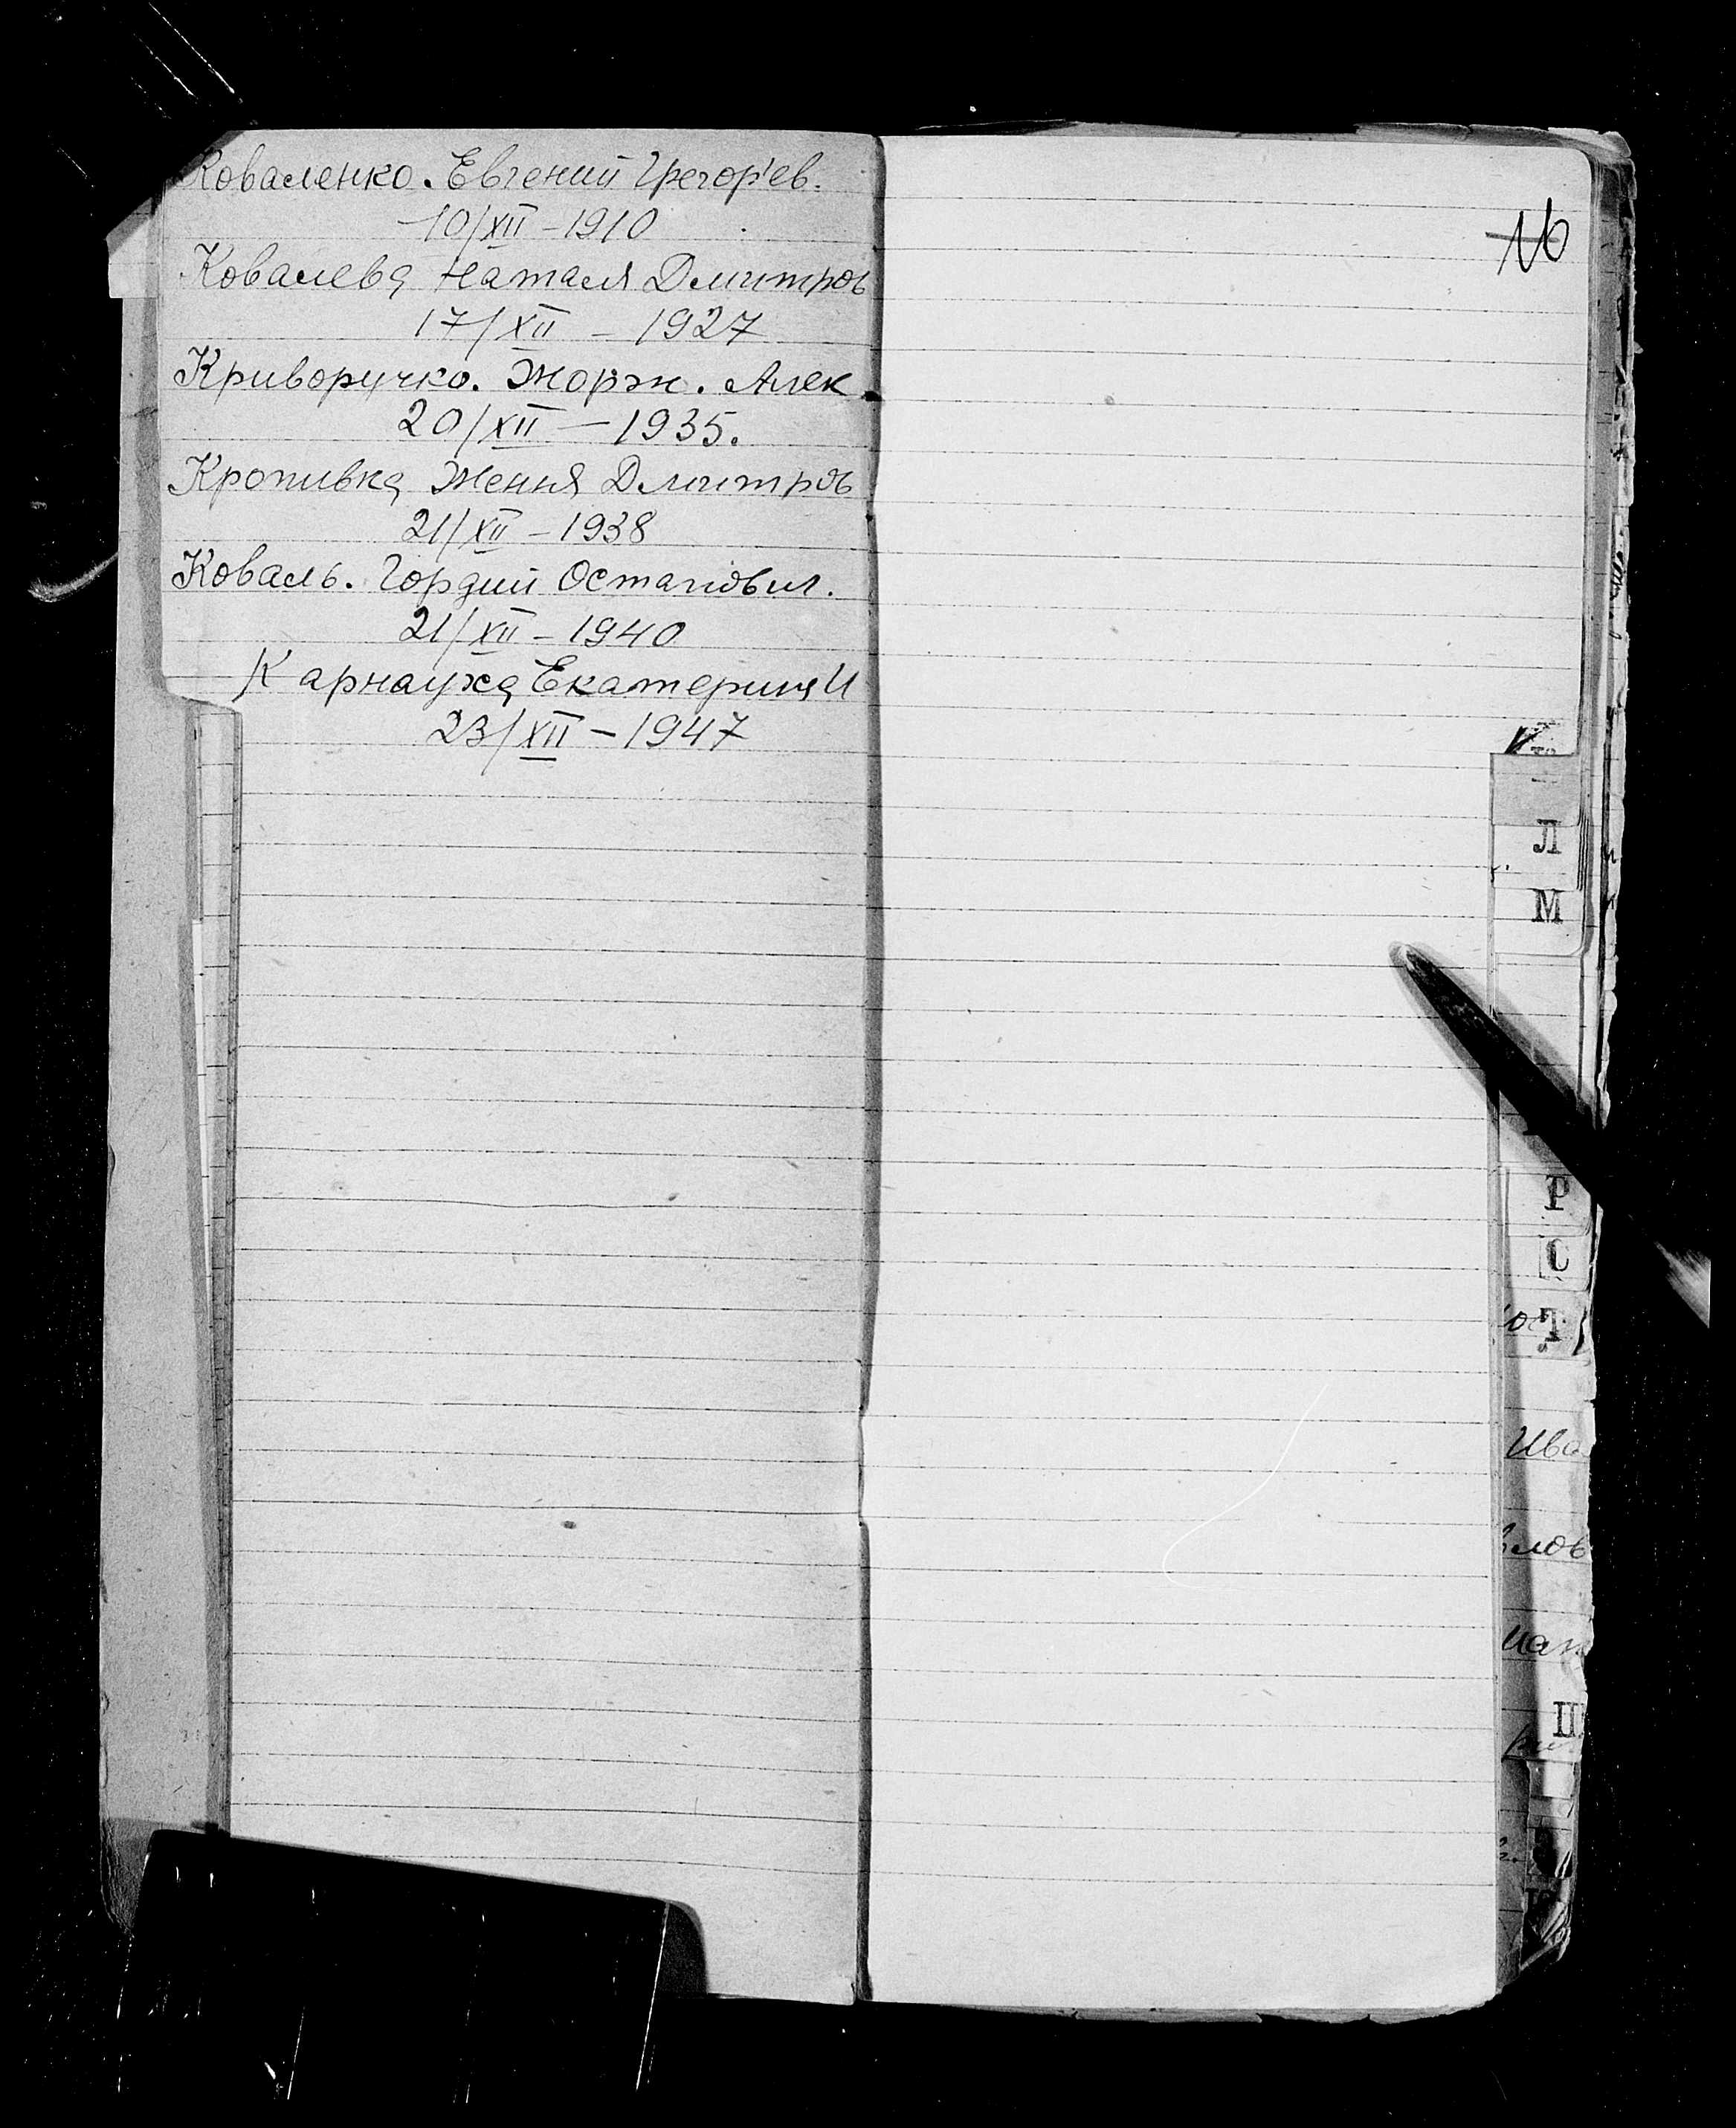 Коваленко. Евгений Грегор'ев.
10/XII - 1910
Ковалева Наталя Дмитров
17/XII - 1927
Криворучко. Жорж. Алек.
20/XII - 1935.
Кропивка Ження Дмитров
21/XII - 1938
Коваль. Гордий Остапович.
21/XII - 1940
Карнауха Екатерина И
23/XII - 1947
16
Л
М
Р
С
Т
Ива
лов